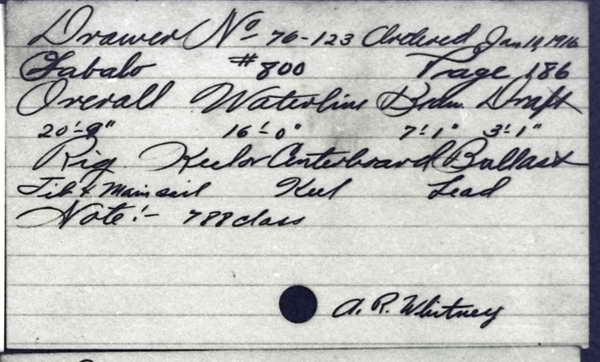 Drawer No 76-123 Ordered Jan 19, 1916
Sabalo #800 Page 186
Overall Waterline Beam Draft
20'-9" 16'-0" 7'-1" 3'-1"
Rig Keel or Centerboard Ballast
Jib & Mainsail Keel Lead
Note:- 788 class
A. R. Whitney